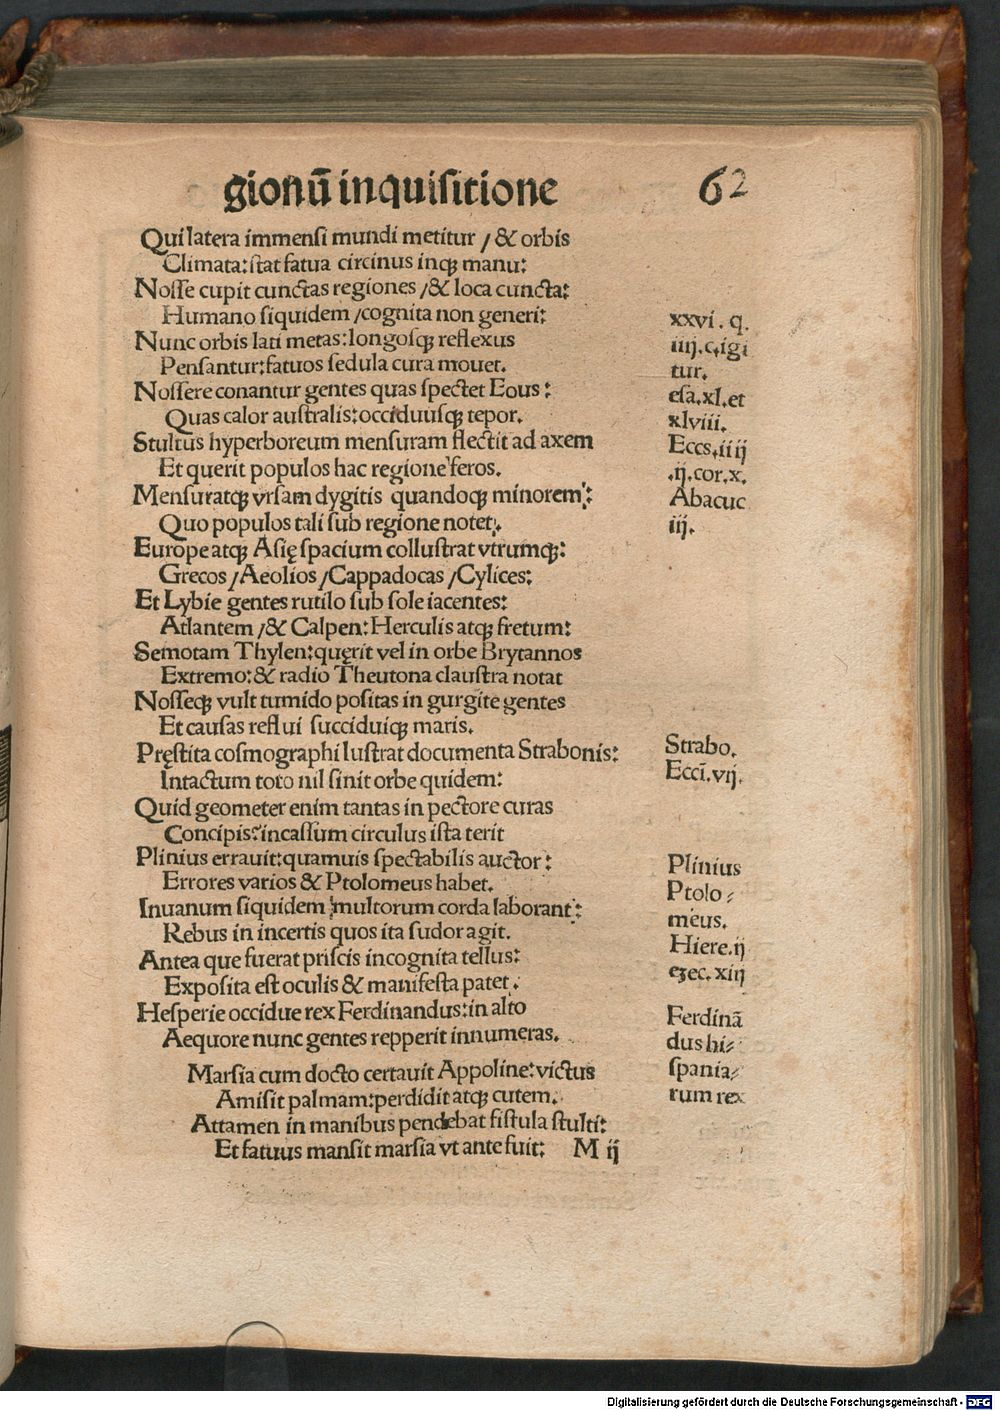 gionū inquisitione 62
Qui latera immensi mundi metitur / & orbis
Climata: stat fatua circinus inqꝫ manu:
Nosse cupit cunctas regiones / & loca cuncta:
Humano siquidem / cognita non generi:
Nunc orbis lati metas: longosqꝫ reflexus
Pensantur: fatuos sedula cura mouet.
Nossere conantur gentes quas spectet Eous:
Quas calor australis: occiduusqꝫ tepor.
Stultus hyperboreum mensuram flectit ad axem
Et querit populos hac regione feros.
Mensuratqꝫ vrsam dygitis quandoqꝫ minorem:
Quo populos tali sub regione notet.
Europe atqꝫ Asię spacium collustrat vtrumqꝫ:
Grecos / Aeolios / Cappadocas / Cylices:
Et Lybie gentes rutilo sub sole iacentes:
Atlantem / & Calpen: Herculis atqꝫ fretum:
Semotam Thylen: quęrit vel in orbe Brytannos
Extremo: & radio Theutona claustra notat
Nosseqꝫ vult tumido positas in gurgite gentes
Et causas reflui succiduiqꝫ maris.
Pręstita cosmographi lustrat documenta Strabonis:
Intactum toto nil sinit orbe quidem:
Quid geometer enim tantas in pectore curas
Concipis? incassum circulus ista terit
Plinius errauit: quamuis spectabilis auctor:
Errores varios & Ptolomeus habet.
Inuanum siquidem multorum corda laborant:
Rebus in incertis quos ita sudor agit.
Antea que fuerat priscis incognita tellus:
Exposita est oculis & manifesta patet.
Hesperie occidue rex Ferdinandus: in alto
Aequore nunc gentes repperit innumeras.
Marsia cum docto certauit Appoline: victus
Amisit palmam: perdidit atqꝫ cutem.
Attamen in manibus pendebat fistula stulti:
Et fatuus mansit marsia vt ante fuit: M ij
xxvi. q.
iiij. c. igi
tur.
esa. xl. et
xlviii.
Eccs. iiij
.ij. cor. x.
Abacuc
iij.
Strabo.
Ecci̅. vij.
Plinius
Ptolo⸗
meus.
Hiere. ij
eʒec. xiij
Ferdinā
dus hi⸗
spania⸗
rum rex
Digitalisierung gefördert durch die Deutsche Forschungsgemeinschaft - DFG